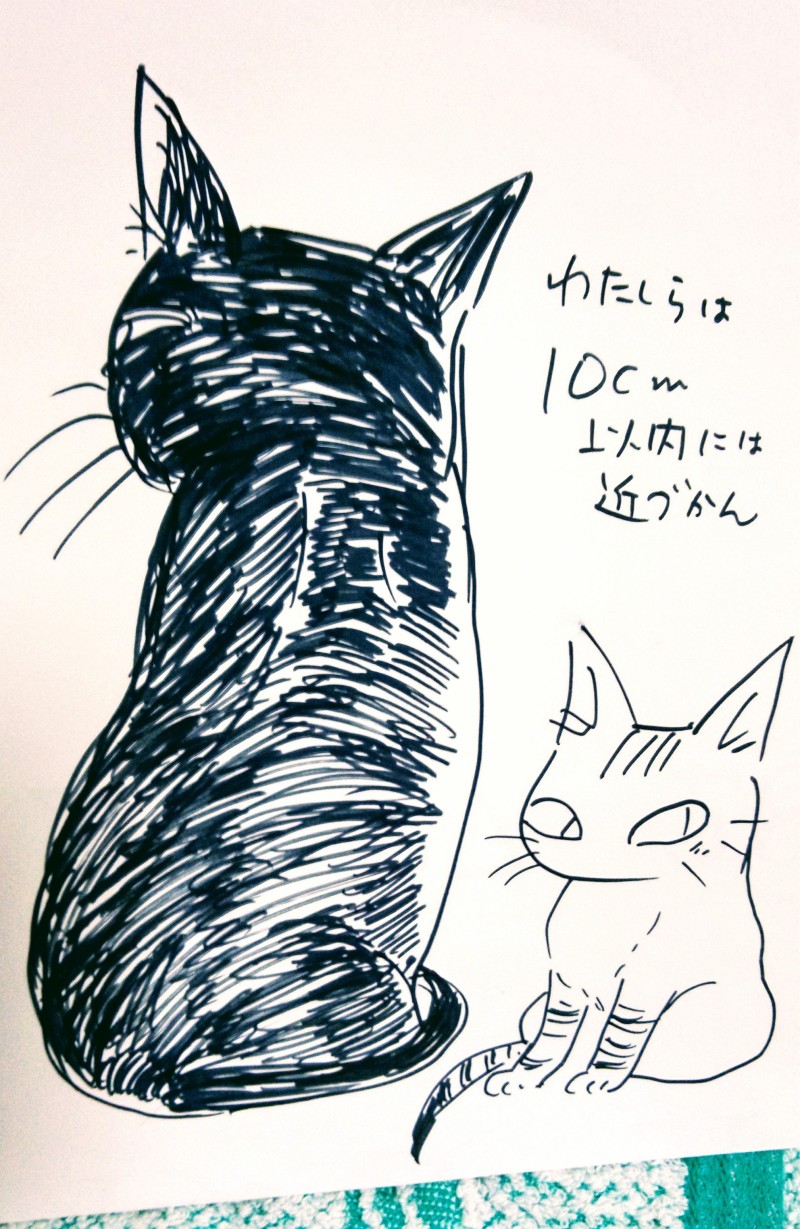 わたしらは
10cm
以内には
近づかん